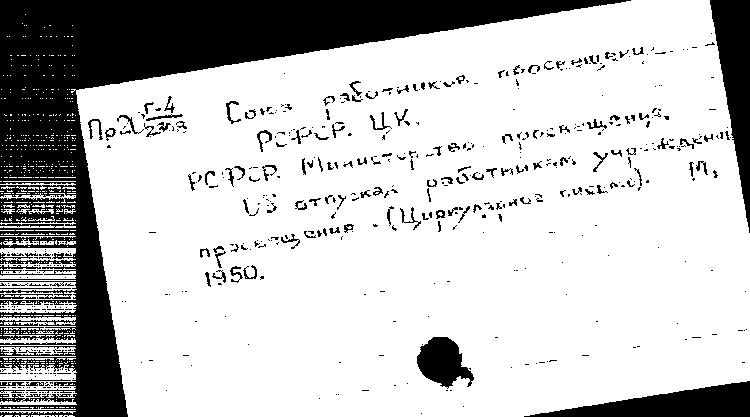 Пр20 Г-4/2303 Союз работников просвещения
РСФСР. ЦК.
РСФСР. Министерство просвещения.
Об отпусках работникам учреждений
просвещения. (Циркулярное письмо). М,
1950.